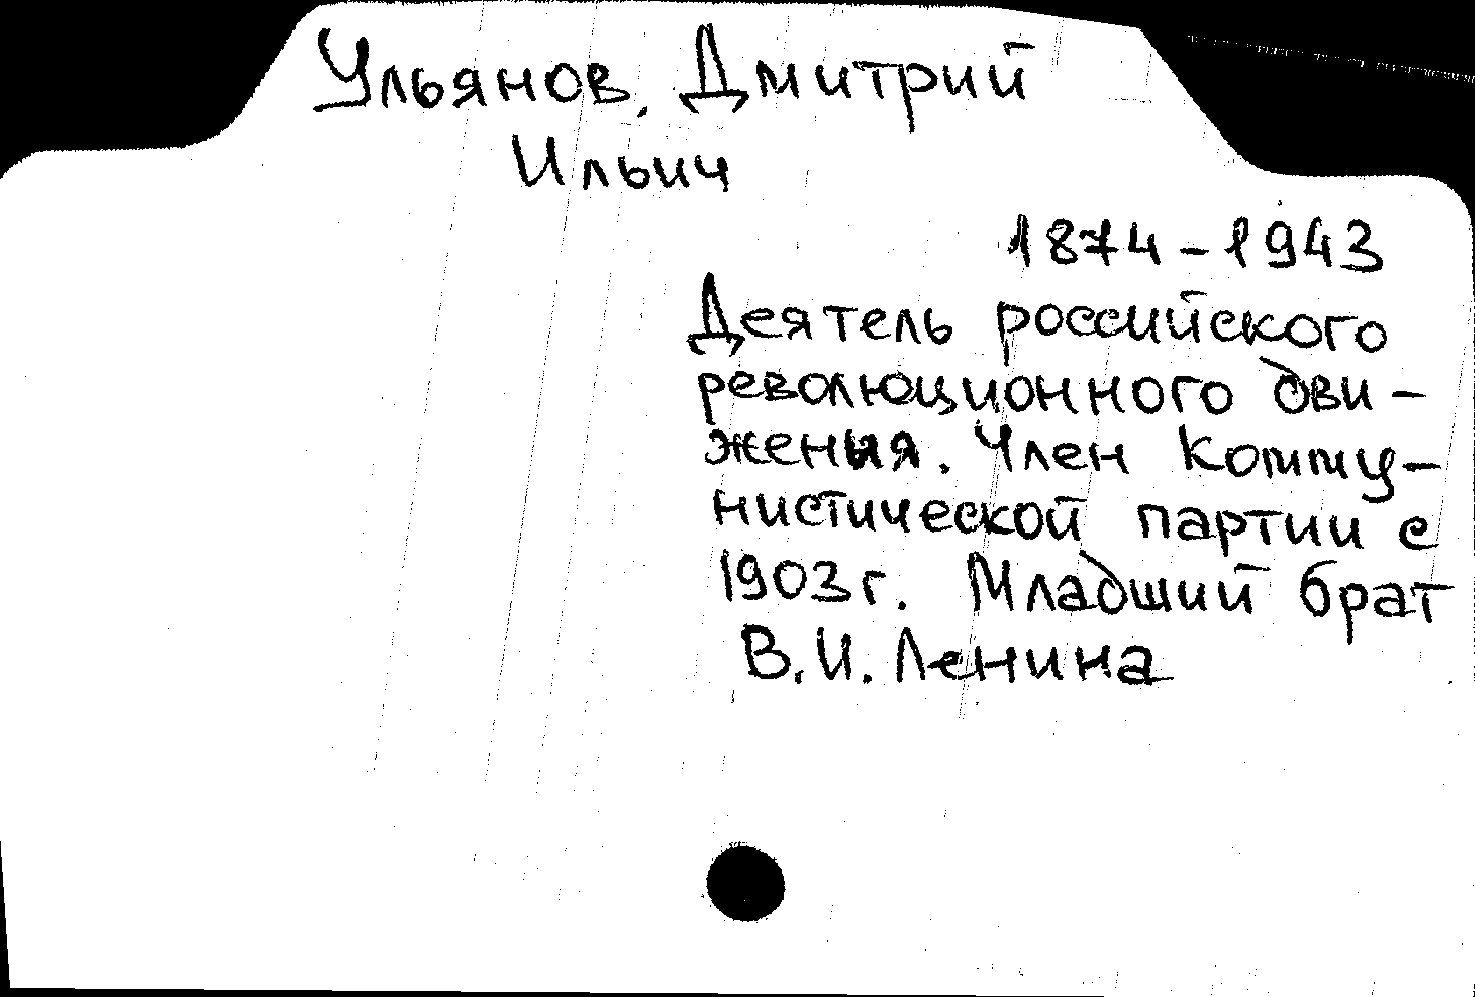 Ульянов, Дмитрий
Ильич
1874-1943
Деятель российского
революционного дви-
жения. Член Комму-
нистической партии с
1903 г. Младший брат
В.И. Ленина